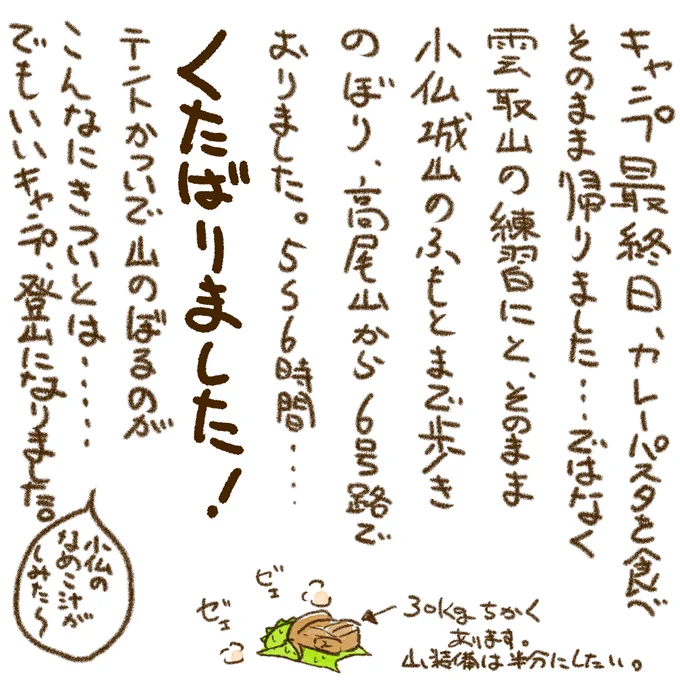 キャンプ最終日、カレーパスタを食べ
そのまま帰りました…ではなく
雲取山の練習にと、そのまま
小仏城山のふもとまで歩き
のぼり、高尾山から6号路で
おりました。5〜6時間‥‥
くたばりました！
テントかついで山のぼるのが
こんなにきついとは‥‥‥
でもいいキャンプ、登山になりました。
小仏の
なめこ汁が
しみた〜
ゼェ
ゼェ
30kgちかく
あります。
山装備は半分にしたい。